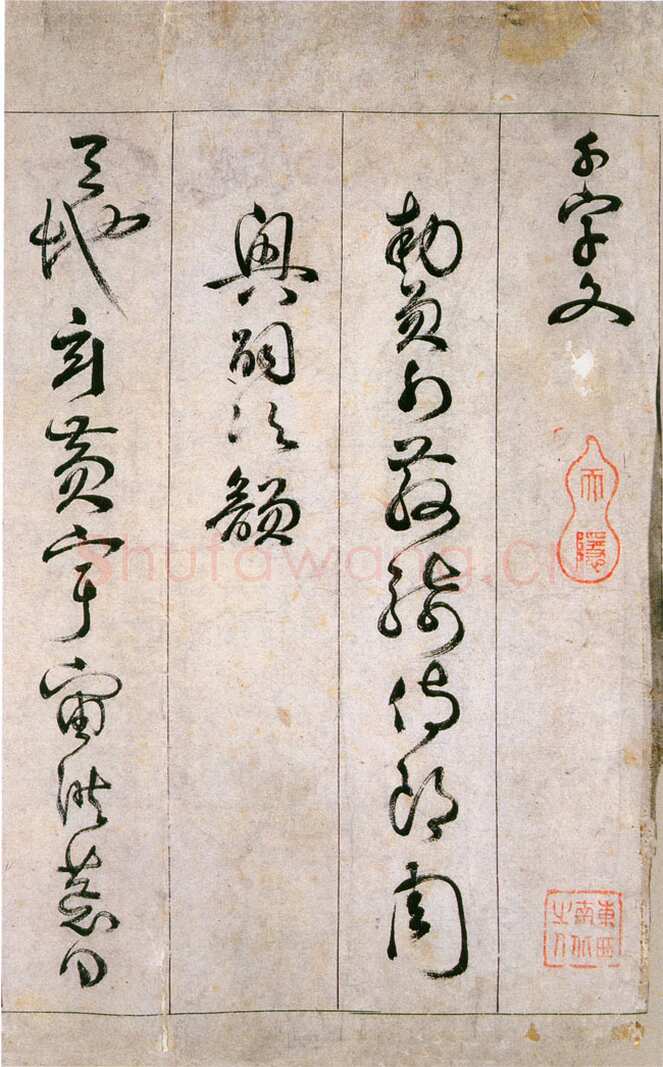 千字文
勅員外散騎侍郎周
興嗣次韻
天地玄黃宇宙洪荒日
東西南北之人
Shufawang.cn